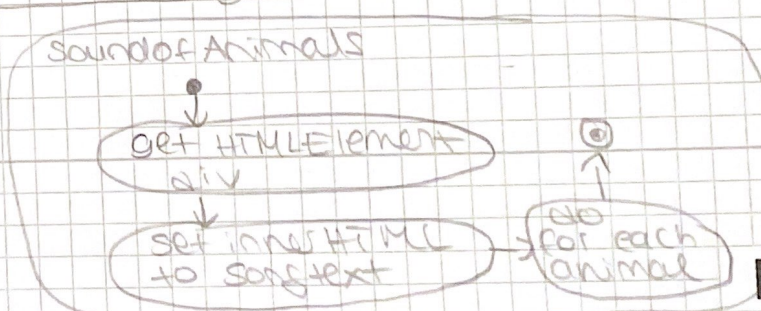 soundofAnimals
get HTMLElement
div
set innerHTML
to songtext
do
for each
animal